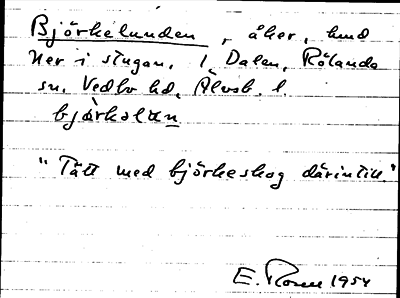 Björkelunden, åker, hmd
Ner i stugan, 1 Dalen, Rölanda
sn, Vedbo hd, Älvsb. l.
bjàrkəlun
"Tätt med björkeskog därintill."
E. Rosell 1954